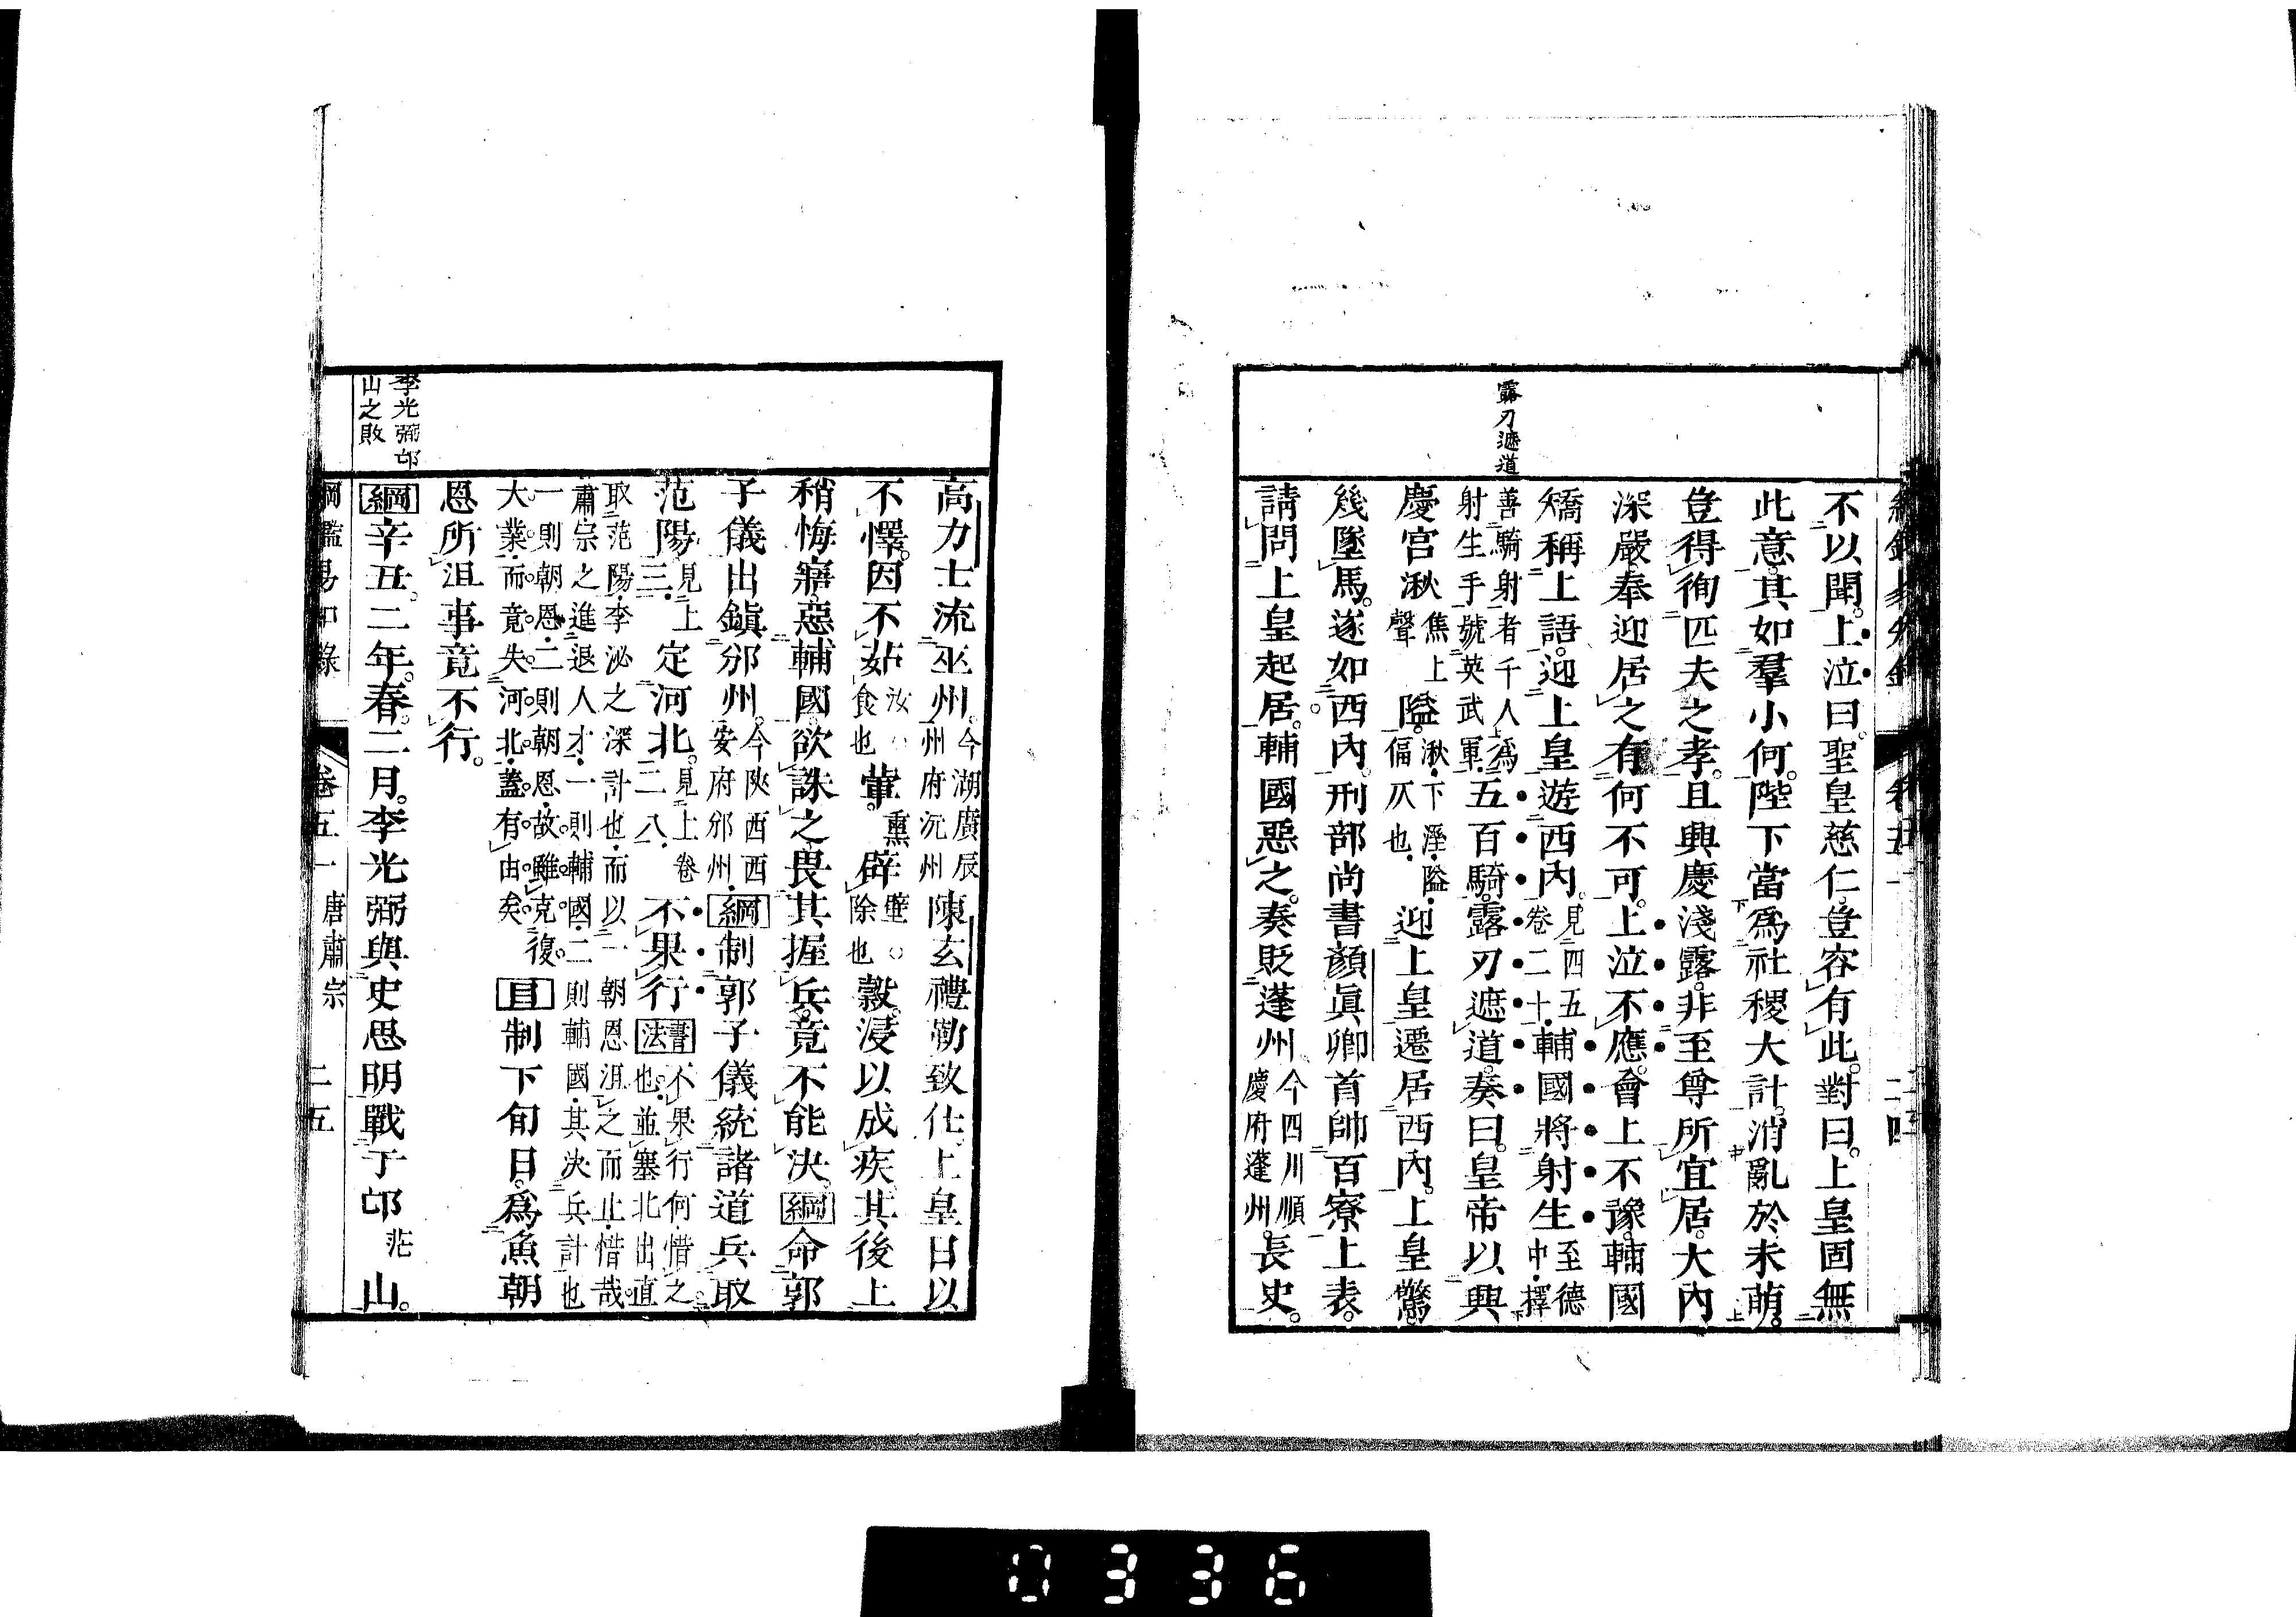 露刃遮道
不以聞。上泣曰。聖皇慈仁。豈容有此。對曰。上皇固無
此意。其如羣小何。陛下當爲社稷大計。消亂於未萌。
豈得徇匹夫之孝。且興慶淺露。非至尊所宜居。大內
深嚴。奉迎居之。有何不可。上泣不應。會上不豫。輔國
矯稱上語。迎上皇遊西內。見四五卷二十。輔國將射生至德中擇
善騎射者千人爲射生手號英武軍。五百騎。露刃遮道。奏曰。皇帝以興
慶宮湫焦上聲隘。湫下溼隘偪仄也。迎上皇遷居西內。上皇驚。
幾墜馬。遂如西內。刑部尚書顏眞卿首帥百寮上表。
請問上皇起居。輔國惡之。奏貶蓬州今四川順慶府蓬州。長史。
卷五一 二四
高力士流巫州。今湖廣辰州府沅州陳玄禮勒致仕。上皇日以
不懌。因不茹汝○食也葷。熏辟壁○除也穀。浸以成疾。其後上
稍悔寤。惡輔國。欲誅之。畏其握兵。竟不能決。綱命郭
子儀出鎭邠州。今陝西西安府邠州。綱制郭子儀統諸道兵取
范陽。見上三定河北。見上卷二八不果行書法不果行何惜之也並塞北出直
取范陽李泌之深計也而以一朝恩沮之而止惜哉
肅宗之進退人才一則輔國二則輔國其決兵計也
一則朝恩二則朝恩故雖克復
大業而竟失河北蓋有由矣目制下旬日。爲魚朝
恩所沮。事竟不行。
綱辛丑。二年。春。二月。李光弼與史思明戰于邙茫山。
李光弼邙
山之敗
綱鑑易知錄 卷五一 唐肅宗 二五
0336